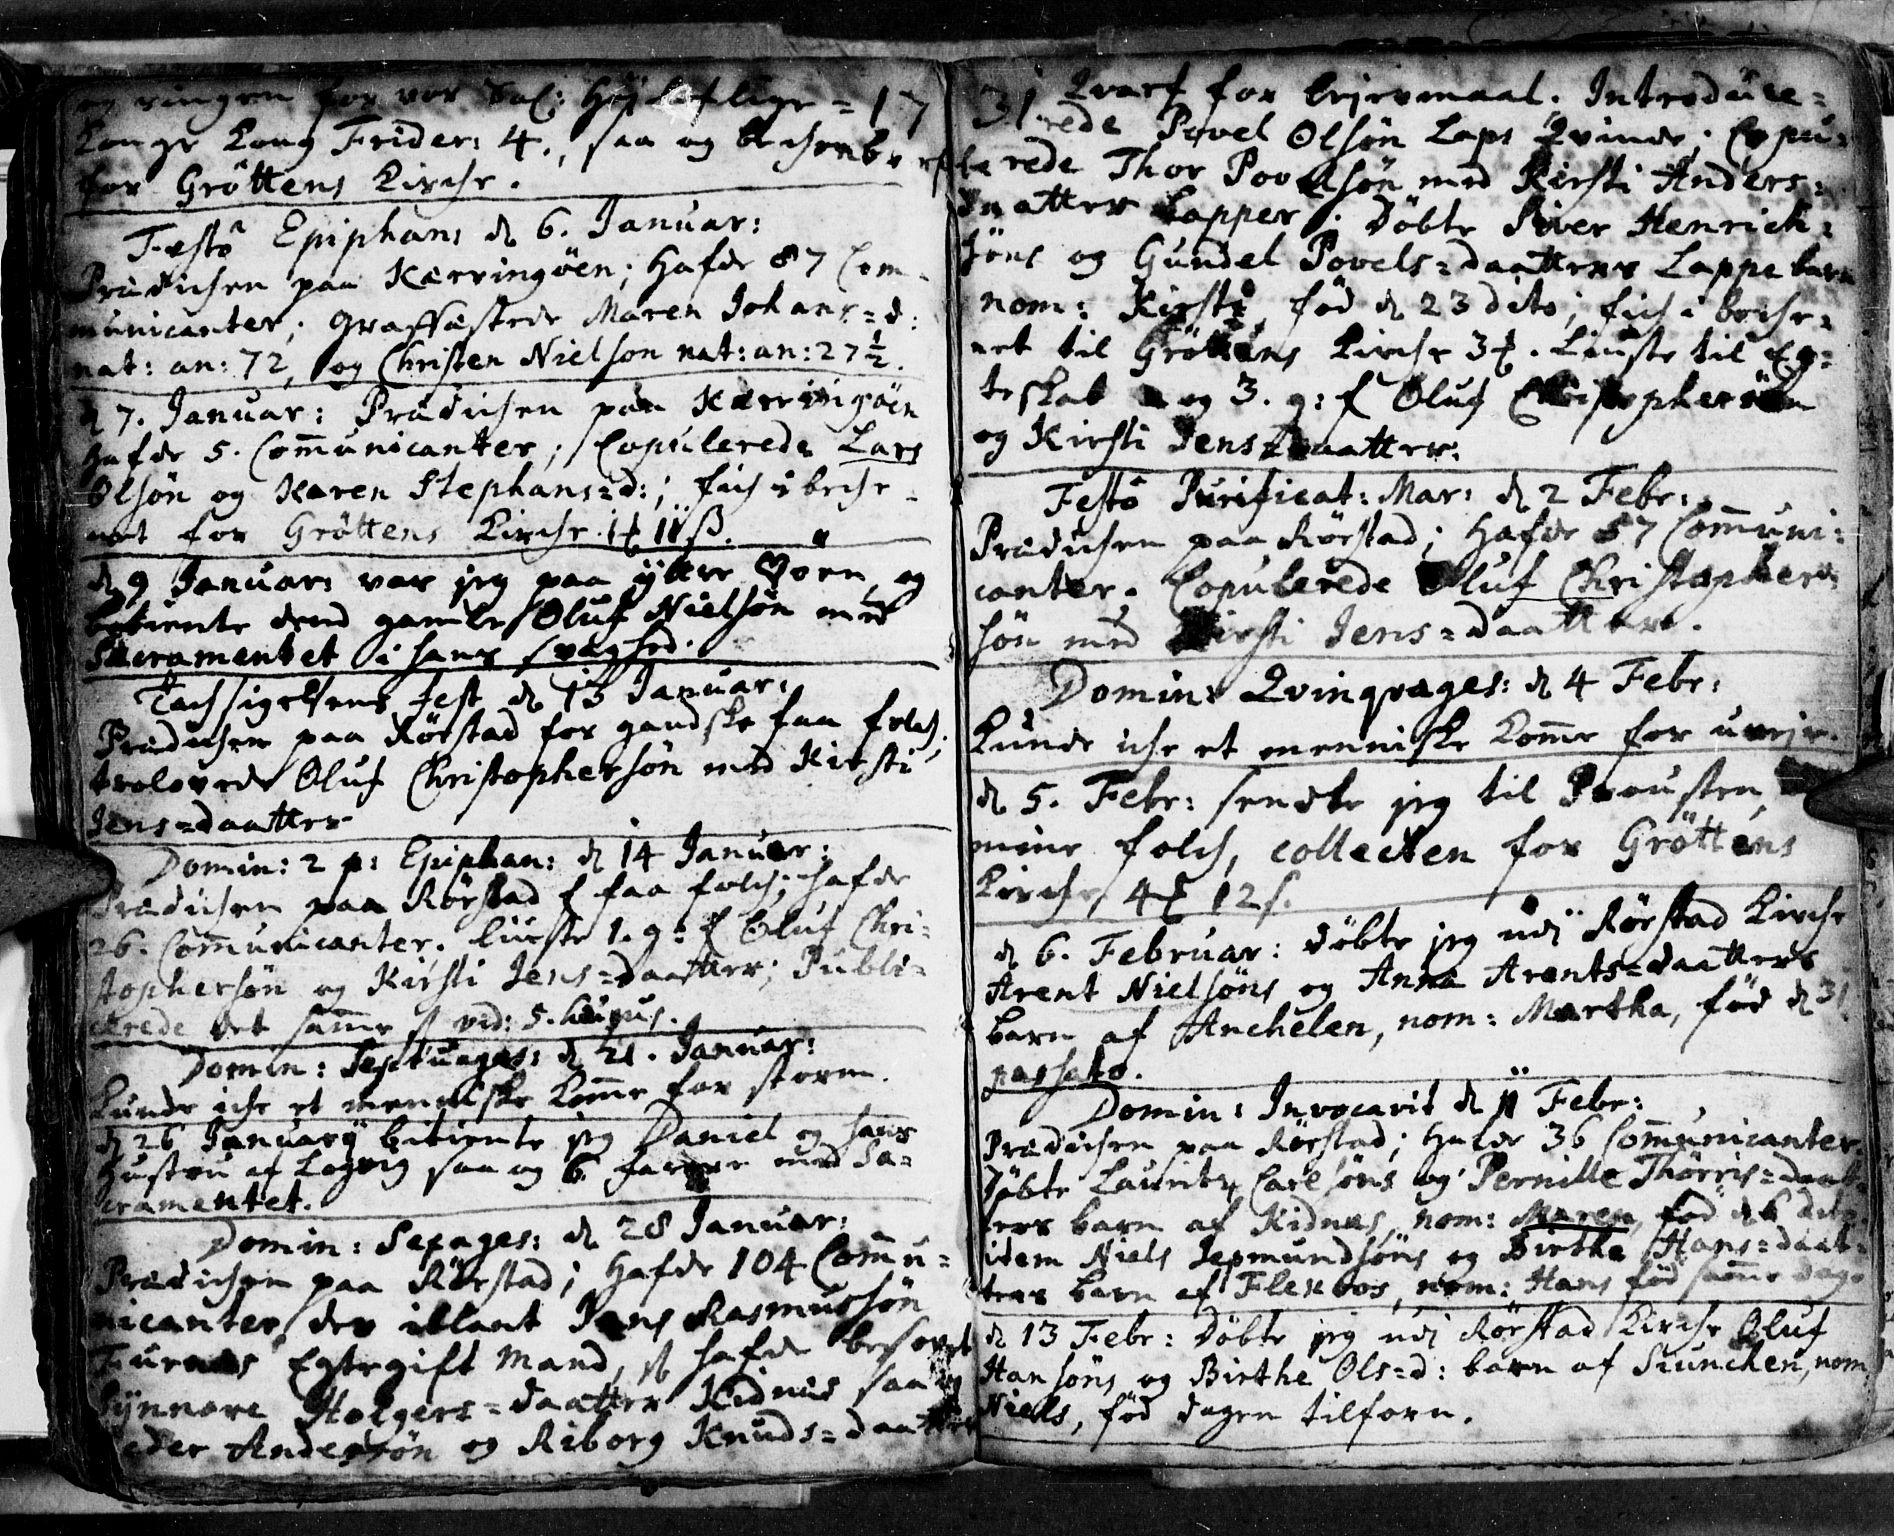 og ringen for vor Sal: Høyloflige = 17
Konge Kong Frider: 4., saa og bechenb
for Gröttens Kirche.
Festo Epiphani d 6. Januar:
Prædichen paa Kærringöen; Hafde 87 Com-
municanter; Graffæstede Maren Johans=d:
nat: an: 72, og Christen Nielson nat: an: 27½.
d 7. Januar: Prædichen paa Kærringöen
Hafde 5. Communicanter; Copulerede Lars
Olsön og Karen Stephans=d:; fich i beche-
net for Gröttens Kirche
d 9 Januar: var jeg paa yttre og
betiente dend gamle Oluf Nielsön med
Sacramentet i hans svaghed.
Tachsigelsens Fest d 13 Januar:
Prædichen paa Rörstad for gandske faa folch.
trolovede Oluf Christophersön med Kirsti
Jens=daatter
Domin: 2 p: Epiphan: d 14 Januar:
Prædichen paa Rörstad f faa folch; hafde
26. Communicanter. Liuste 1. g: f Oluf Chri-
stophersön og Kirsti Jens=daatter; Publi-
cerede det samme
Domin: Septuages: d 21. Januar:
Kunde iche et menniske komme for storm.
d 26 Januarij betiente jeg Daniel og hans
Hustru af Løgvig saa og 6 med Sa-
cramentet.
Domin: Sexages: d 28 Januar:
Prædichen paa Rörstad; Hafde 104 Commu-
nicanter, der iblant Jens Rasmussön
Furnes Egtegift Mand, hafde besovet
Synnove Holgers=daatter Kidnes saa og
Peder Andersön og Riborg Knuds=daatter
31 Qvart for lejermaal. Introduce-
rede Povel Olsön Laps Qvinde; Copu-
lerede Thor Povelsön med Kirsti Anders-
daatter Lapper. Döbte Siver Henrich-
söns og Gundel Povels=daatters Lappe barn
nom: Kirsti, föd d 23 dito; fich i beche-
net til Gröttens Kirche 3 . Liuste til Eg-
teskab og 3. g: f Oluf Christophersön
og Kirsti Jens daatter.
Festo Purificat: Mar: d 2 Febr:
Prædichen paa Rörstad; Hafde 87 Communi-
canter. Copulerede Oluf Christopher-
sön med Kirsti Jens=daatter.
Domin: Qvinqvages: d 4 Febr:
Kunde iche et menniske komme for uvejr.
d 5. Febr: sendte jeg til Prousten,
mine folch, collecten for Gröttens
Kirche, 4 12 s.
d 6. Februar: döbte jeg udj Rörstad Kirche
Arent Nielsöns og Anna Arents=daatters
barn af Anchelen, nom: Martha, föd d 31
passato.
Domin: Invocavit d 11 Febr:
Prædichen paa Rörstad; Hafde 36 Communicanter.
Döbte Lauritz Carlsöns og Pernille Thörris=daat-
ters barn af Kidnes, nom: Maren, föd d 6 dito.
idem Niels Jepmundsöns og Birthe Hans=daat-
ters barn af Flexvos, nom: Hans föd samme dag.
d 13 Febr: Döbte jeg udj Rörstad Kirche Oluf
Hansöns og Birthe Ols=d: barn af Siunchen, nom
Niels, föd dagen tilforn.